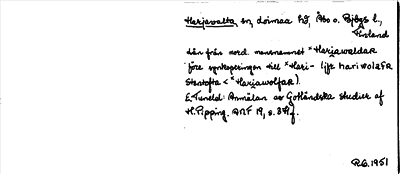 Harjavalta, sn, Loimaa hd, Åbo o. Bjbgs l.,
Finland
lån från nord. mansnamnet *Harjawaldaʀ
före synkoperingen till *Hari- (jfr hariwolafʀ
Stentofta < *Harjawolfaʀ).
E. Tuneld: Anmälan av Gotländska studier af
H. Pipping. ANF 19, s. 89f.
R.G. 1951